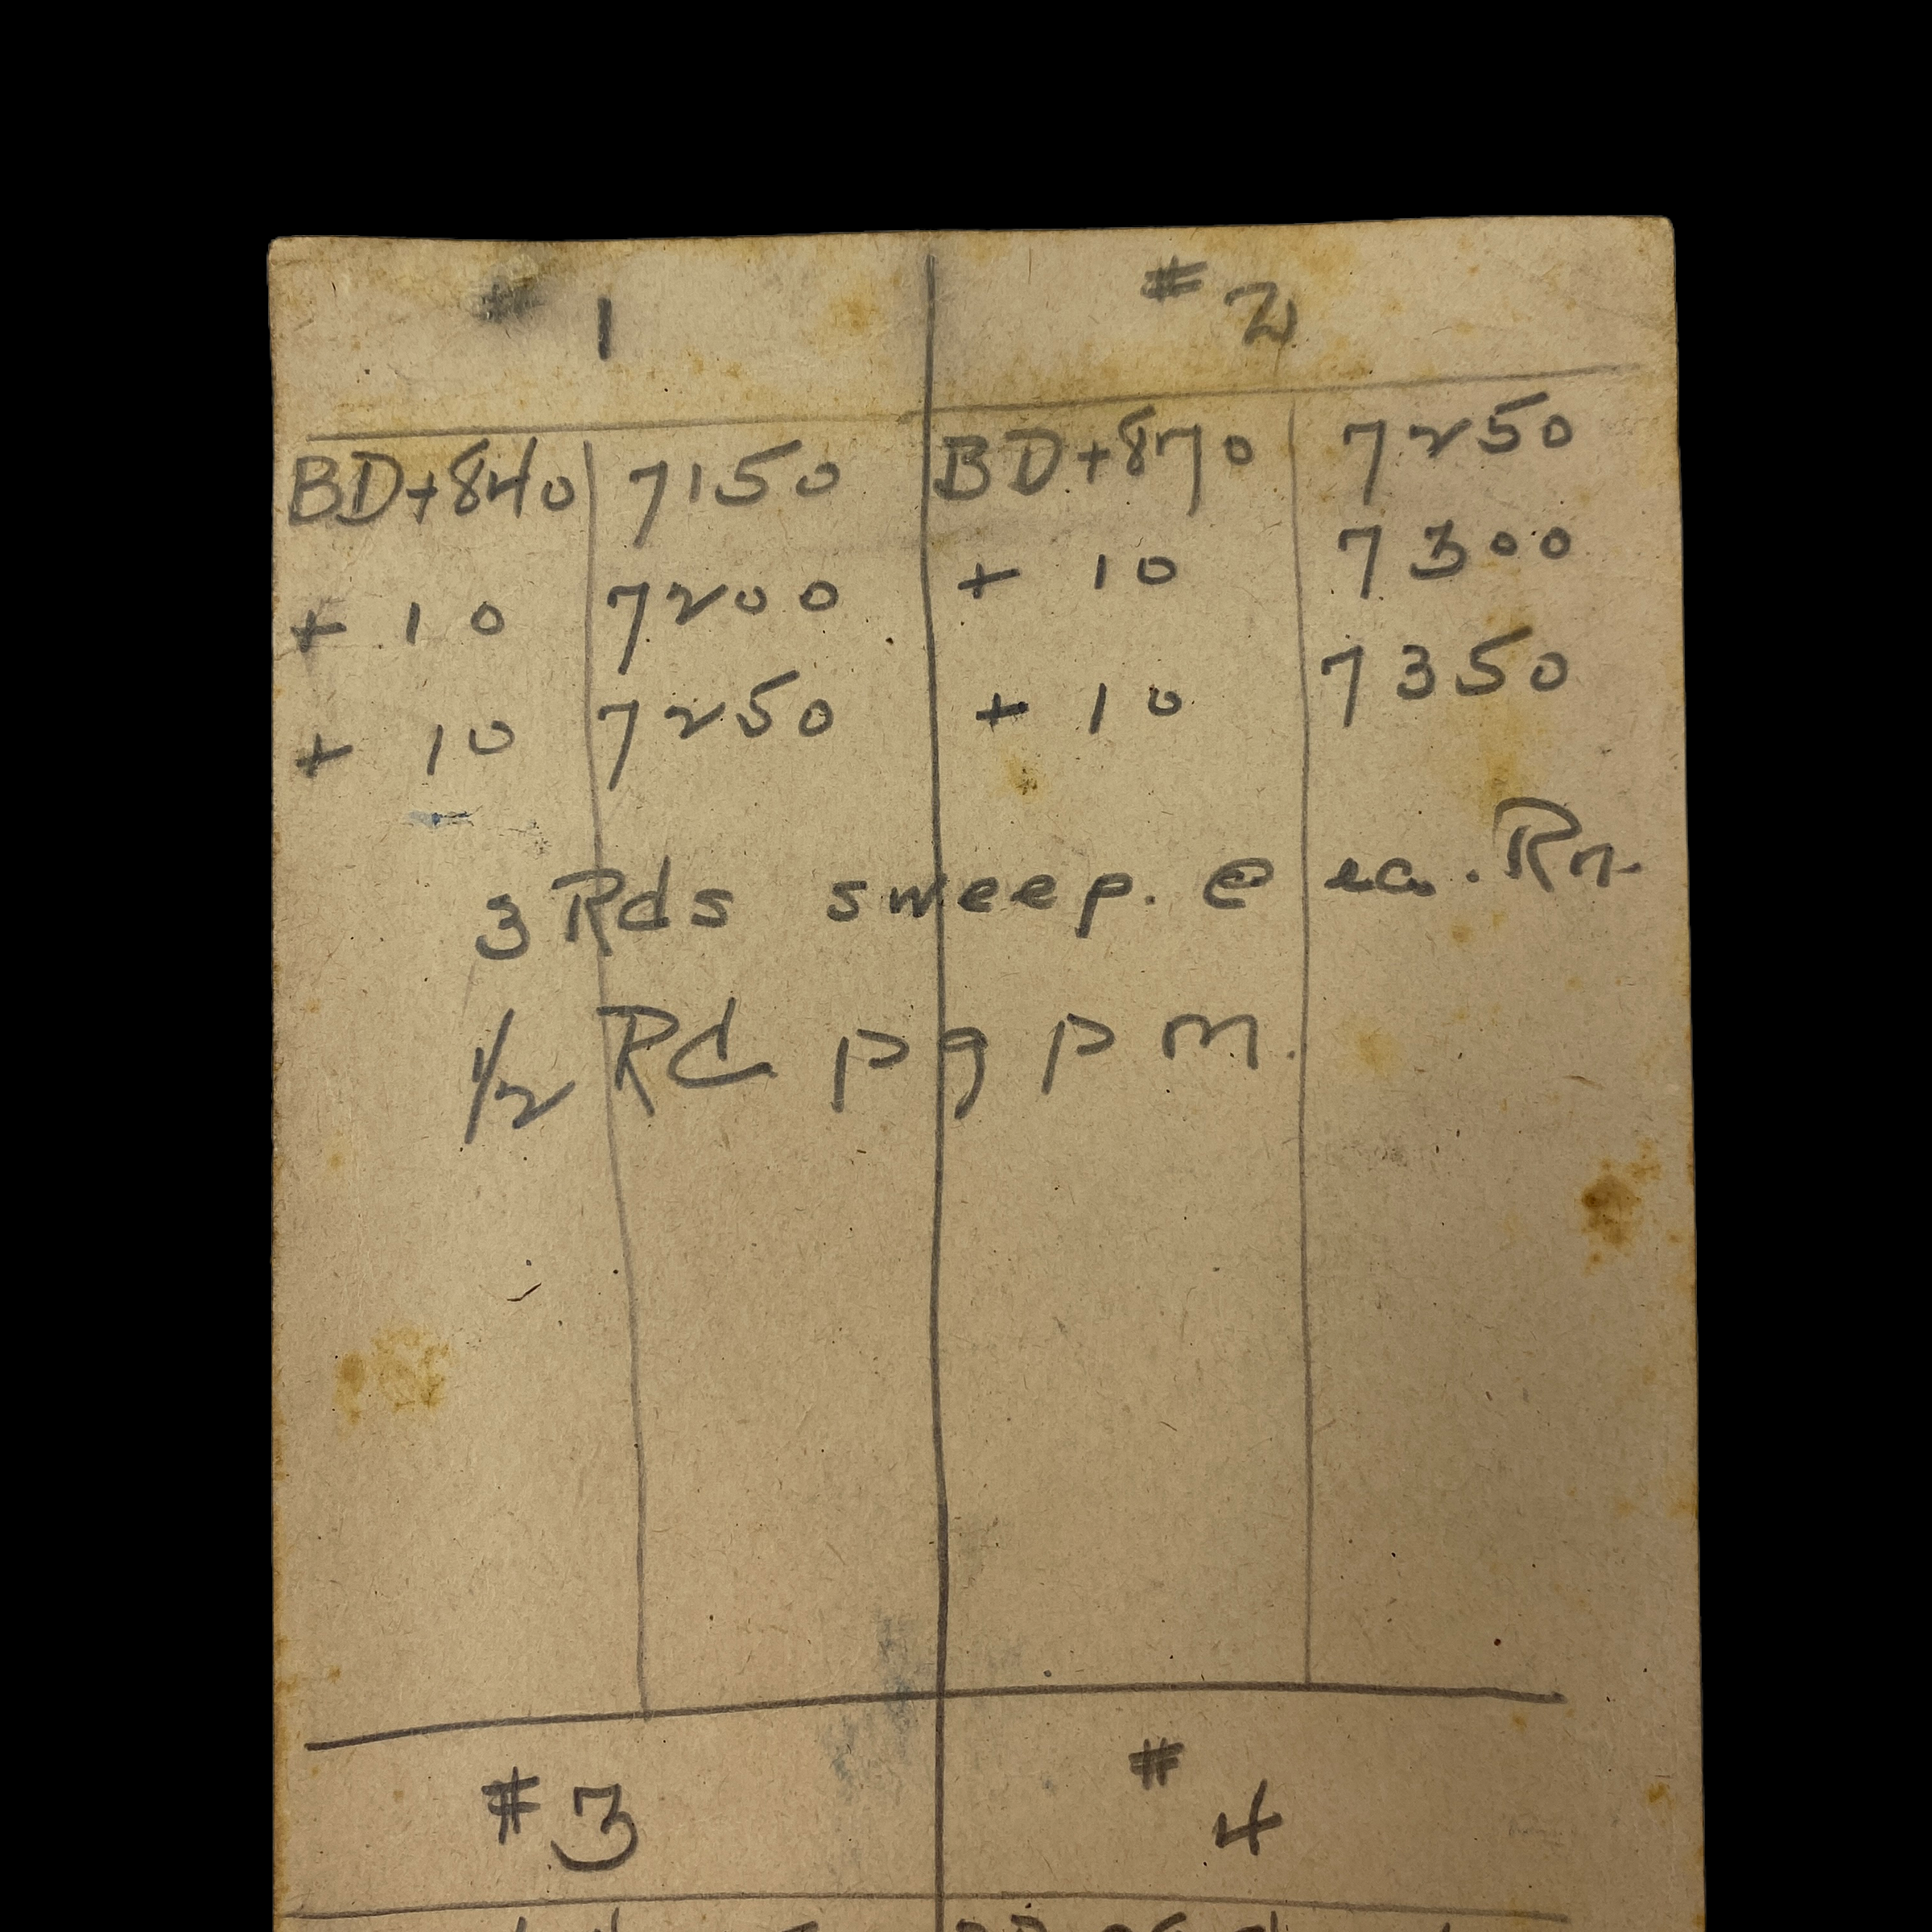 #1 #2
BD+840 7150 BD+870 7250
+ 10 7200 + 10 7300
+ 10 7250 + 10 7350
3 Rds sweep. @ ea. Rn.
1/2 Rd p g p m.
#3 #4